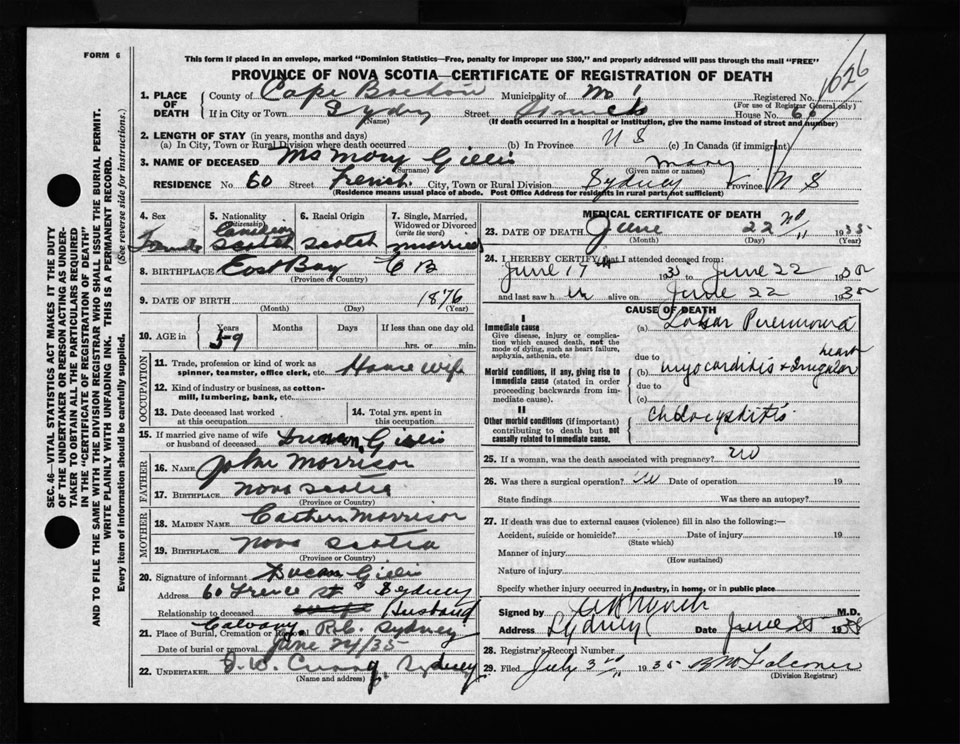 FORM 6
This form if placed in an envelope, marked "Dominion Statistics—Free, penalty for improper use $300," and properly addressed will pass through the mail "FREE"
1026
PROVINCE OF NOVA SCOTIA—CERTIFICATE OF REGISTRATION OF DEATH
SEC. 46—VITAL STATISTICS ACT MAKES IT THE DUTY
OF THE UNDERTAKER OR PERSON ACTING AS UNDER-
TAKER TO OBTAIN ALL THE PARTICULARS REQUIRED
IN THE "CERTIFICATE OF REGISTRATION OF DEATH"
AND TO FILE THE SAME WITH THE DIVISION REGISTRAR WHO SHALL ISSUE THE BURIAL PERMIT.
WRITE PLAINLY WITH UNFADING INK. THIS IS A PERMANENT RECORD.
Every item of information should be carefully supplied. (See reverse side for instructions.)
1. PLACE OF DEATH County of Cape Breton Municipality of No 1 Registered No.
(For use of Registrar General only)
If in City or Town Sydney Street French House No. 60
(Name) (If death occurred in a hospital or institution, give the name instead of street and number)
2. LENGTH OF STAY (in years, months and days)
(a) In City, Town or Rural Division where death occurred (b) In Province N S (c) In Canada (if immigrant)
3. NAME OF DECEASED Ms Mary Gillis Mary
(Surname) (Given name or names)
RESIDENCE No 60 Street French City, Town or Rural Division Sydney Province N S
(Residence means usual place of abode. Post Office Address for residents in rural parts not sufficient)
4. Sex Female
5. Nationality (Citizenship) Canadian Scotch
6. Racial Origin Scotch
7. Single, Married, Widowed or Divorced (write the word) married
8. BIRTHPLACE East Bay C B
(Province or Country)
9. DATE OF BIRTH 1876
(Month) (Day) (Year)
10. AGE in Years 59 Months Days If less than one day old
hrs. or min.
OCCUPATION
11. Trade, profession or kind of work as spinner, teamster, office clerk, etc. House wife
12. Kind of industry or business, as cotton-mill, lumbering, bank, etc.
13. Date deceased last worked at this occupation
14. Total yrs. spent in this occupation
15. If married give name of wife or husband of deceased Duncan Gillis
FATHER
16. NAME John Morrison
17. BIRTHPLACE Nova Scotia
(Province or Country)
MOTHER
18. MAIDEN NAME Cathern Morrison
19. BIRTHPLACE Nova Scotia
(Province or Country)
20. Signature of informant Ducan Gillis
Address 60 Frence St Sydney
Relationship to deceased Husband
21. Place of Burial, Cremation or Removal Calvary R.C. Sydney
Date of burial or removal June 24/35
22. UNDERTAKER Sydney
(Name and address)
MEDICAL CERTIFICATE OF DEATH
23. DATE OF DEATH June 22nd 1935
(Month) (Day) (Year)
24. I HEREBY CERTIFY that I attended deceased from:
June 17th 1935 to June 22 1935
and last saw h alive on June 22 1935
CAUSE OF DEATH
I
Immediate cause
Give disease, injury or complication which caused death, not the mode of dying, such as heart failure, asphyxia, asthenia, etc.
(a) Lobar Pneumonia
due to
Morbid conditions, if any, giving rise to immediate cause (stated in order proceeding backwards from immediate cause).
(b) myocarditis + Irregular heart
due to
(c)
II
Other morbid conditions (if important) contributing to death but not causally related to immediate cause.
Cholecystitis
25. If a woman, was the death associated with pregnancy? no
26. Was there a surgical operation? no Date of operation 19
State findings Was there an autopsy?
27. If death was due to external causes (violence) fill in also the following:—
Accident, suicide or homicide? Date of injury 19
(State which)
Manner of injury
(How sustained)
Nature of injury
Specify whether injury occurred in industry, in home, or in public place
Signed by M.D.
Address Sydney Date June 25 1935
28. Registrar's Record Number
29. Filed July 3rd 1935 Falconer
(Division Registrar)